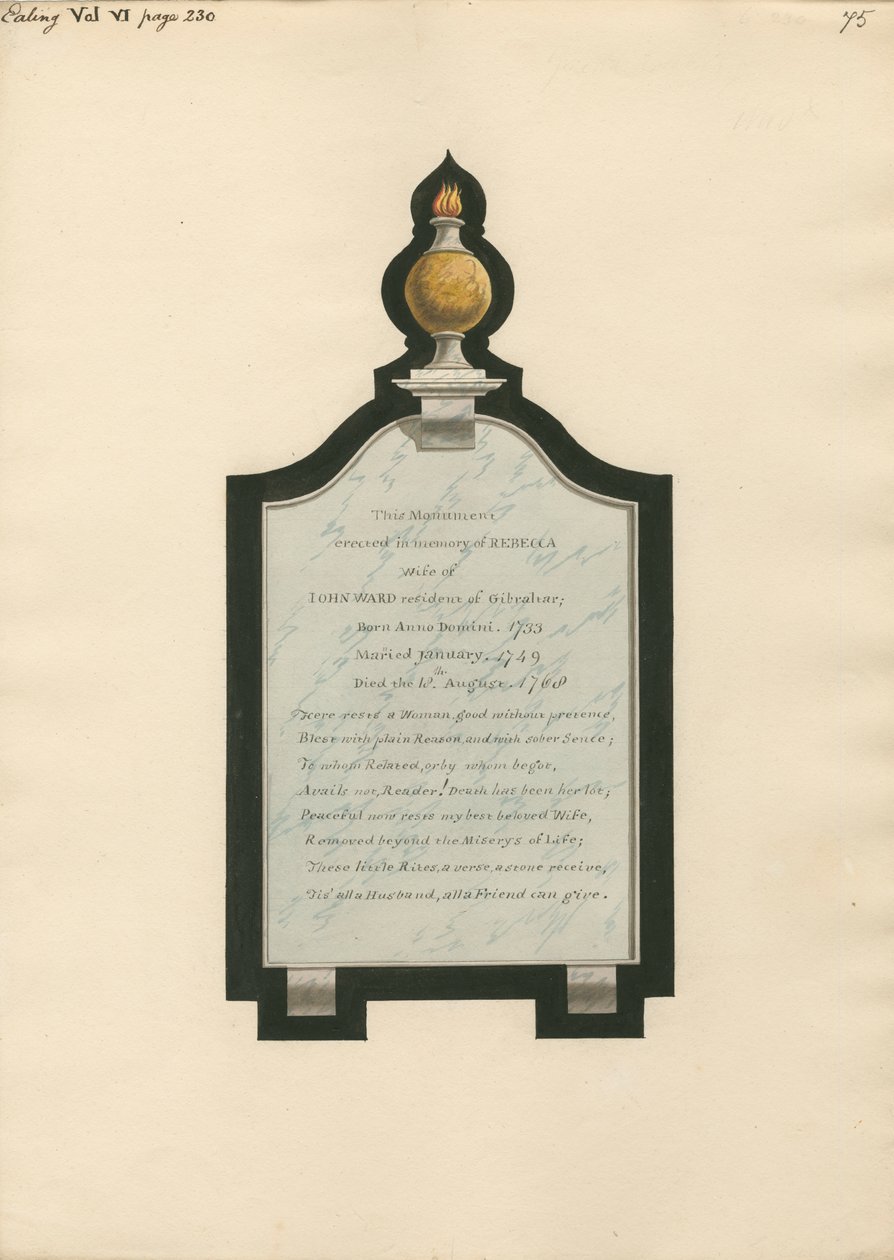 Ealing Vol VI page 230
75
This Monument
erected in memory of REBECCA
Wife of
IOHN WARD resident of Gibraltar;
Born Anno Domini. 1733
Maried January. 1749
Died the 18th. August. 1768
Here rests a Woman, good without pretence,
Blest with plain Reason, and with sober Sence;
To whom Related, or by whom begot,
Avails not, Reader! Death has been her lot;
Peaceful now rests my best beloved Wife,
Removed beyond the Miserys of Life;
These little Rites, a verse, a stone receive,
Tis' all a Husband, all a Friend can give.